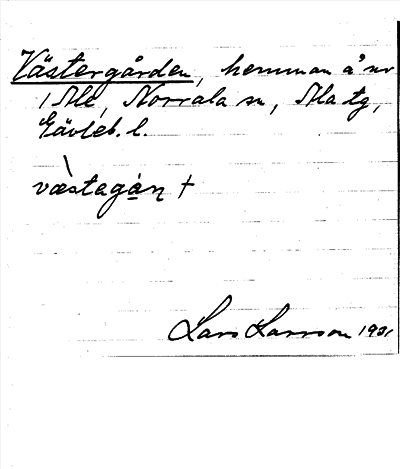 Västergården, hemman å nr
1 Ale, Norrala sn, Ala tg,
Gävleb. l.
væ̀stagạṇ +
Lars Larsson 1931